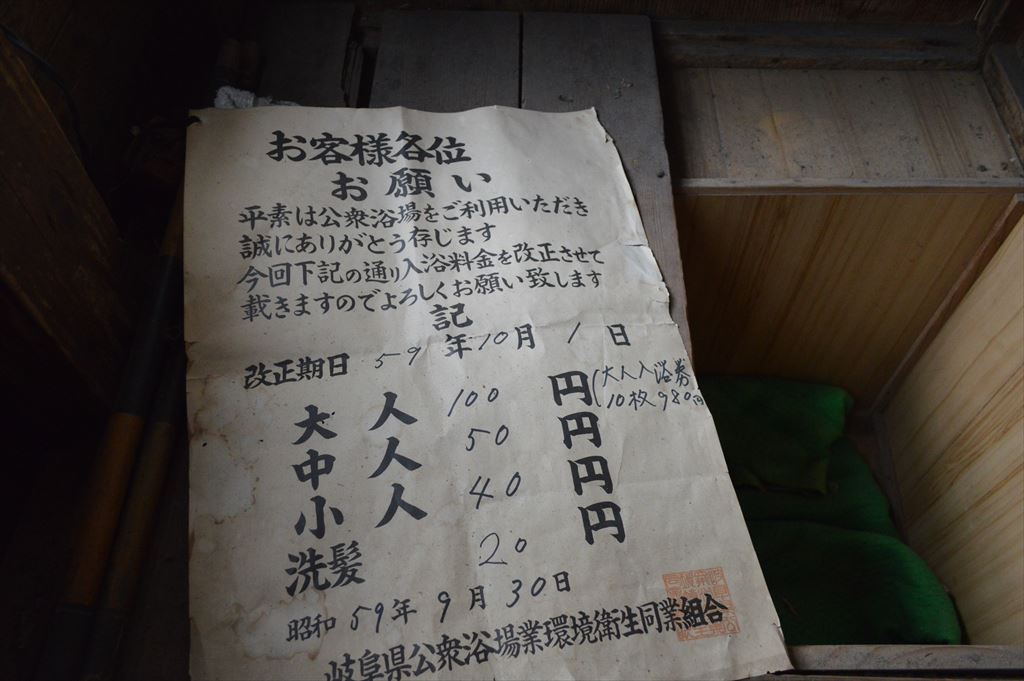 お客様各位
お願い
平素は公衆浴場をご利用いただき
誠にありがとう存じます
今回下記の通り入浴料金を改正させて
載きますのでよろしくお願い致します
記
改正期日 59年10月1日
大人 100円(大人入浴券
10枚980円
中人 50円
小人 40円
洗髪 20円
昭和59年9月30日
岐阜県公衆浴場業環境衛生同業組合